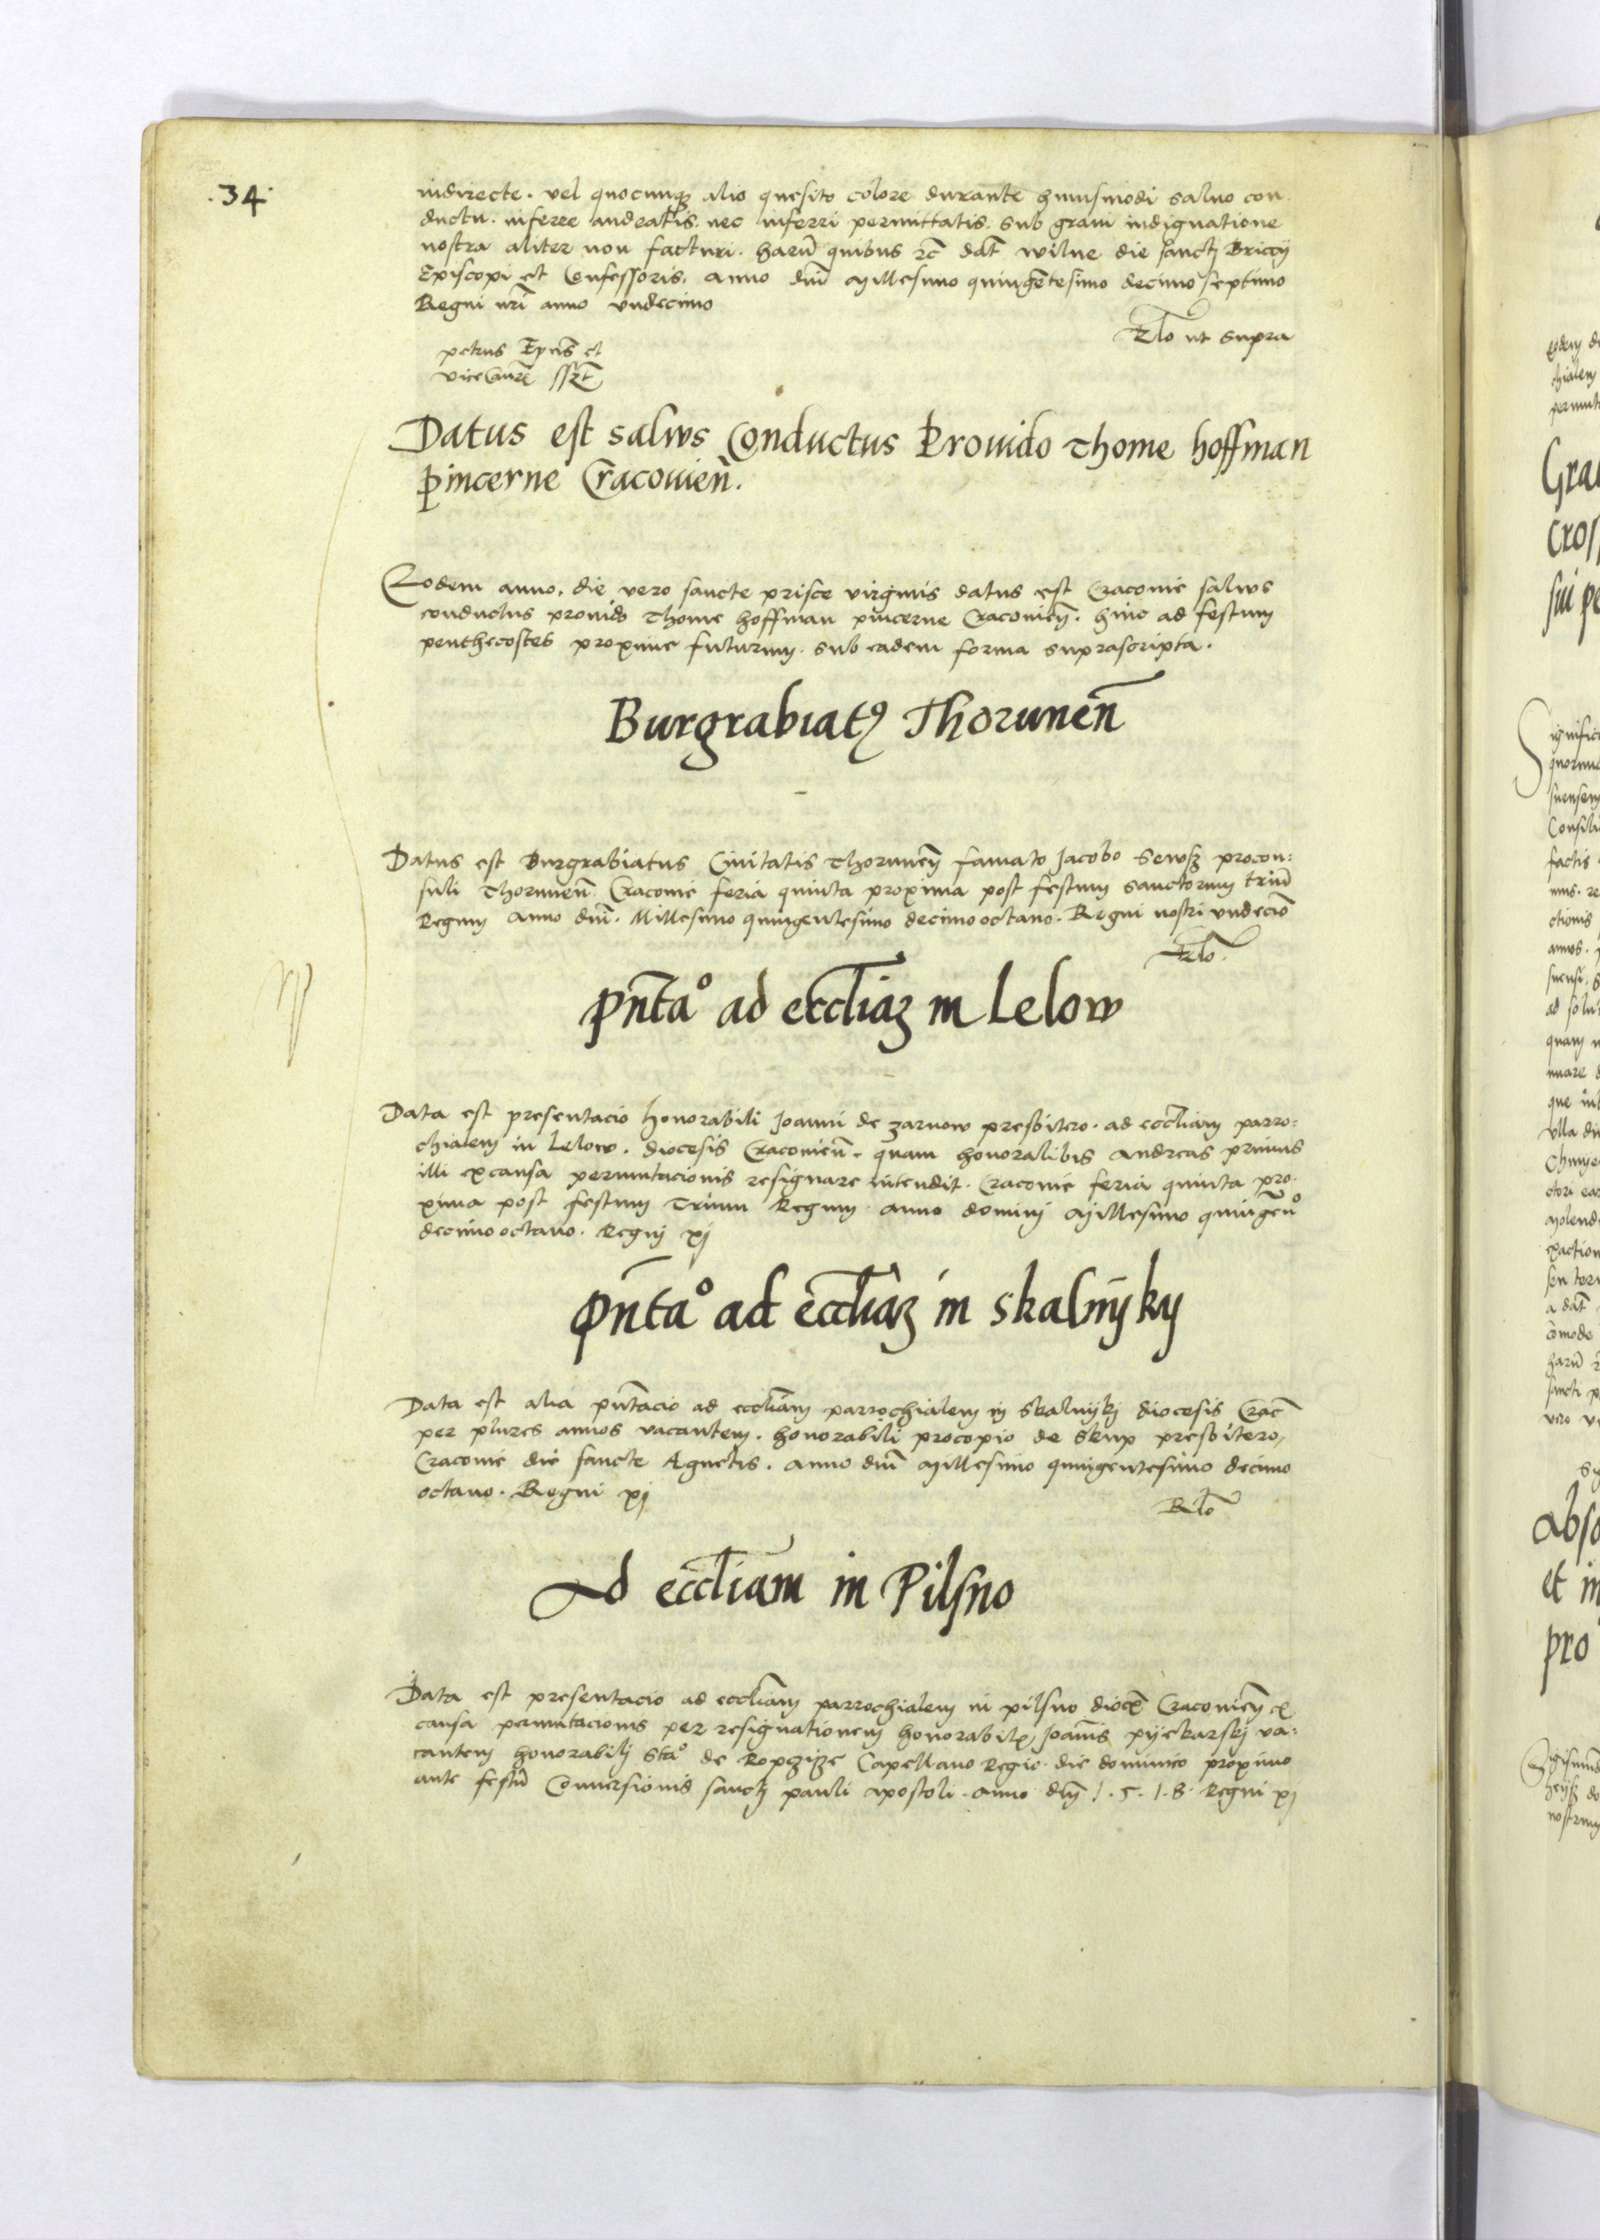 .34.
indirecte. vel quocunqz alio quesito colore durante huiusmodi saluo con
ductu. inferre audeatis. nec inferri permittatis. sub graui indignatione
nostra aliter non facturi. harũ quibus rc̃ dat̃ wilne die sanctj Briccij
Episcopi et Confessoris. Anno dnĩ Millesimo quingẽtesimo decimo septimo
Regni nrĩ anno vndecimo
Rlo ut supra
petrus Ep̃us et
viceCanc̃ sszt
Datus est salws Conductus Prouido Thome hoffman
pincerne Cracouieñ.
Eodem anno. die vero sancte prisce virginis datus est Cracouie salws
conductus prouido Thome hoffman pincerne Cracouień. hinc ad festum
penthecostes proxime futurum. sub eadem forma suprascripta.
Burgrabiatꝰ Thoruneñ
Datus est Burgrabiatus Ciuitatis Thoruneñ famato Jacobo Sewsz procon:
suli Thoruneñ Cracouie feria quinta proxima post festum sanctorum triũ
Regum Anno dnĩ. Millesimo quingentesimo decimooctauo. Regni nostri vndecio
Rlo.
Pñtaº ad eccliaz in Lelow
Data est presentacio honorabili Joanni de zarnow presbitero. ad eccliam parro:
chialem in Lelow. diocesis Cracouień. quam honoralibis Andreas primus
illi excausa permutacionis resignare intendit. Cracouie feria quinta pro.
xima post festum Trium Regum anno dominj Millesimo quingẽnº
decimooctauo. Regnj xj
Pñtaº ad eccliaz in skalnijky
Data est alia pñtacio ad eccliam parrochialem in skalnijkj diocesis Crac̃
per plures annos vacantem. honorabili procopio de Skup presbitero,
Cracouie die sancte Agnetis. Anno dnĩ Millesimo quingentesimo decimo
octauo. Regni xj
Rlo
Ad eccliam in Pilsno
Data est presentacio ad eccliam parrochialem in pilsno dioc̃ Cracouień ex
causa permutacionis per resignationem honorabilis Joannis pijekarskj va:
cantem honorabilj Staº de Ropczijze Capellano Regio die dominico proximo
ante festũ Conuersionis sanctj pauli apostoli. Anno dnĩ 1.5.1.8. Regni xj